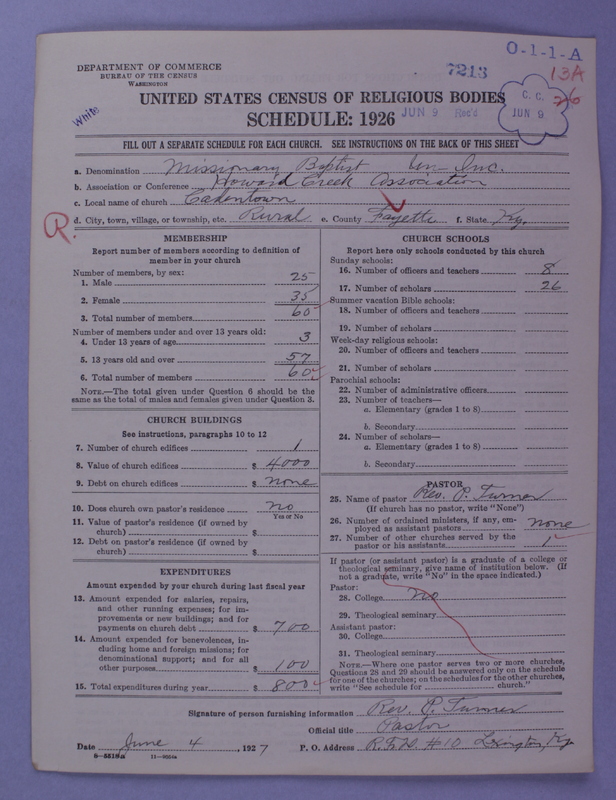 O-1-1-A
7213
13A
26
C. C.
JUN 9
JUN 9 Rec'd
White
DEPARTMENT OF COMMERCE
BUREAU OF THE CENSUS
WASHINGTON
UNITED STATES CENSUS OF RELIGIOUS BODIES
SCHEDULE: 1926
FILL OUT A SEPARATE SCHEDULE FOR EACH CHURCH. SEE INSTRUCTIONS ON THE BACK OF THIS SHEET
a. Denomination Missionary Baptist Inc.
b. Association or Conference Howard Creek Association
c. Local name of church Cadentown
d. City, town, village, or township, etc. Rural e. County Fayette f. State Ky.
R.
MEMBERSHIP
Report number of members according to definition of
member in your church
Number of members, by sex:
1. Male 25
2. Female 35
3. Total number of members 60
Number of members under and over 13 years old:
4. Under 13 years of age 3
5. 13 years old and over 57
6. Total number of members 60
NOTE.—The total given under Question 6 should be the
same as the total of males and females given under Question 3.
CHURCH BUILDINGS
See instructions, paragraphs 10 to 12
7. Number of church edifices 1
8. Value of church edifices $ 4000
9. Debt on church edifices $ none
10. Does church own pastor's residence no
Yes or No
11. Value of pastor's residence (if owned by
church) $
12. Debt on pastor's residence (if owned by
church) $
EXPENDITURES
Amount expended by your church during last fiscal year
13. Amount expended for salaries, repairs,
and other running expenses; for im-
provements or new buildings; and for
payments on church debt $ 700
14. Amount expended for benevolences, in-
cluding home and foreign missions; for
denominational support; and for all
other purposes $ 100
15. Total expenditures during year $ 800
CHURCH SCHOOLS
Report here only schools conducted by this church
Sunday schools:
16. Number of officers and teachers 8
17. Number of scholars 26
Summer vacation Bible schools:
18. Number of officers and teachers
19. Number of scholars
Week-day religious schools:
20. Number of officers and teachers
21. Number of scholars
Parochial schools:
22. Number of administrative officers
23. Number of teachers—
a. Elementary (grades 1 to 8)
b. Secondary
24. Number of scholars—
a. Elementary (grades 1 to 8)
b. Secondary
PASTOR
25. Name of pastor Rev. P. Turner
(If church has no pastor, write "None")
26. Number of ordained ministers, if any, em-
ployed as assistant pastors none
27. Number of other churches served by the
pastor or his assistants 1
If pastor (or assistant pastor) is a graduate of a college or
theological seminary, give name of institution below. (If
not a graduate, write "No" in the space indicated.)
Pastor:
28. College no
29. Theological seminary
Assistant pastor:
30. College
31. Theological seminary
NOTE.—Where one pastor serves two or more churches,
Questions 28 and 29 should be answered only on the schedule
for one of the churches; on the schedules for the other churches,
write "See schedule for church."
Signature of person furnishing information Rev. P. Turner
Official title Pastor
Date June 4, 1927 P. O. Address R.F.D. #10 Lexington, Ky
8—5518a 11—9054a